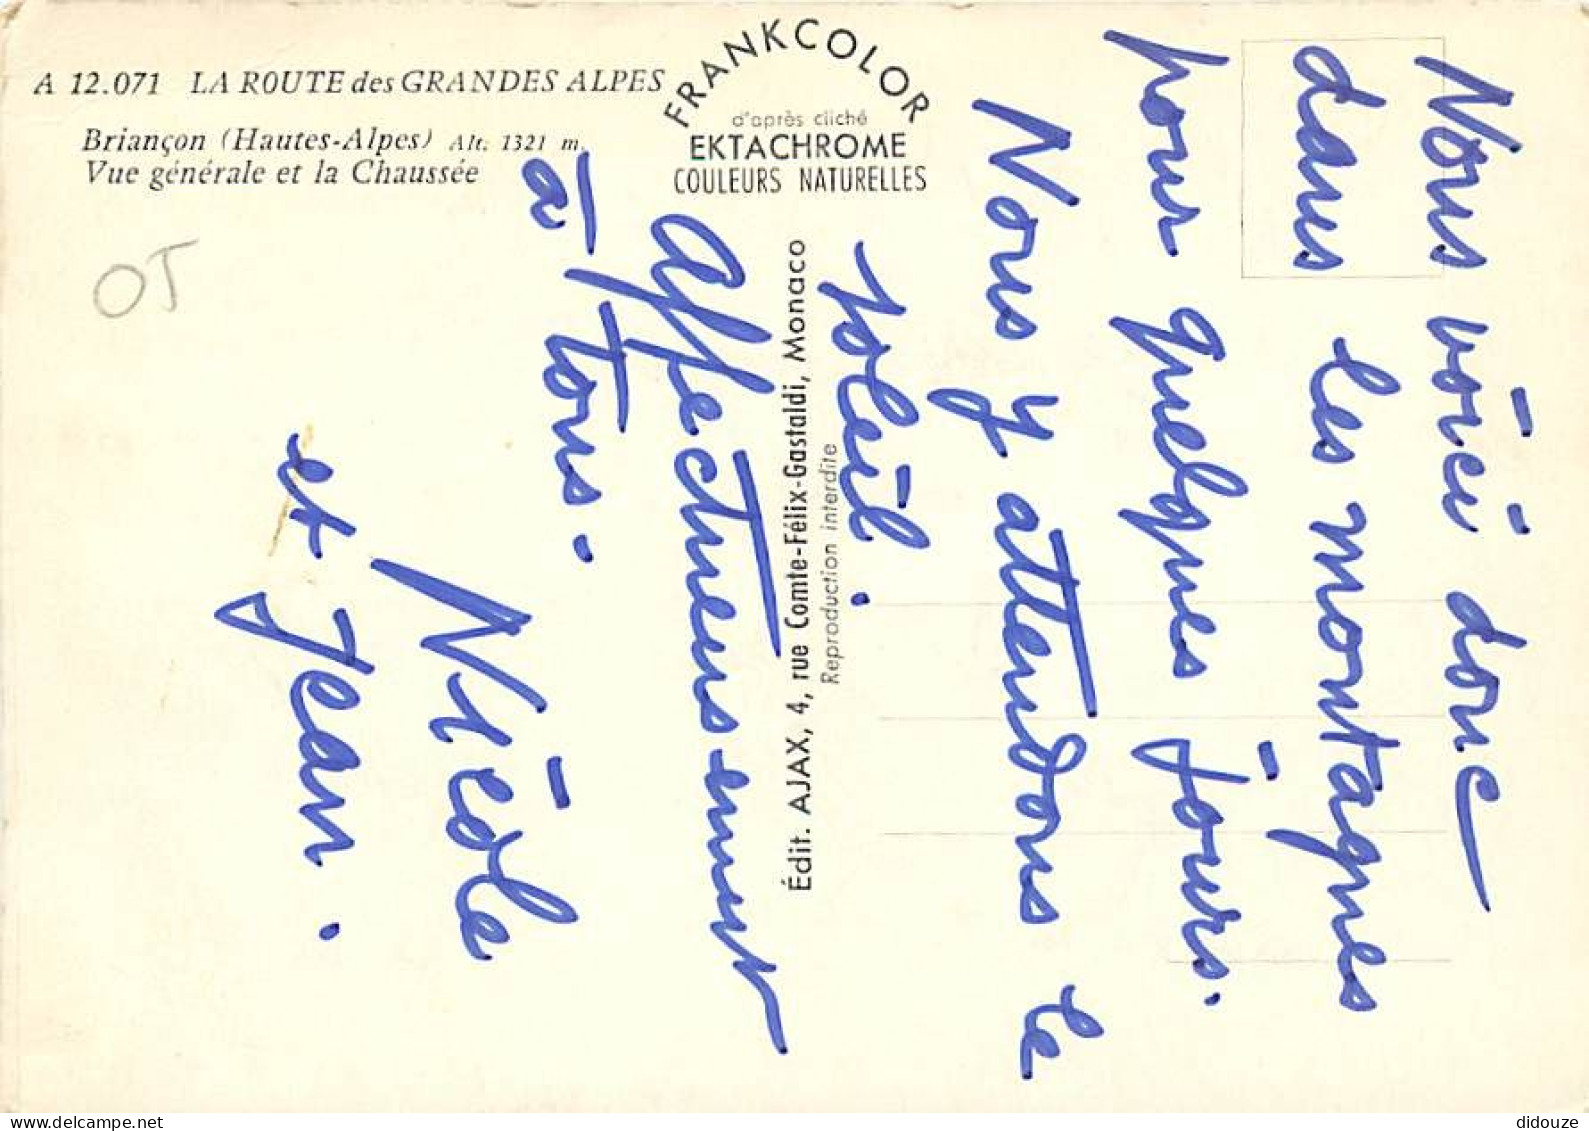 A 12.071 LA ROUTE des GRANDES ALPES
Briançon (Hautes-Alpes) Alt. 1321 m.
Vue générale et la Chaussée
FRANKCOLOR
d'après cliché
EKTACHROME
COULEURS NATURELLES
Édit. AJAX, 4, rue Comte-Félix-Gastaldi, Monaco
Reproduction interdite
OJ
Nous voici donc
dans les montagnes
pour quelques jours.
Nous y attendons le
soleil.
Affectueusement
à tous.
Nicole
et Jean.
delcampe.net
didouze